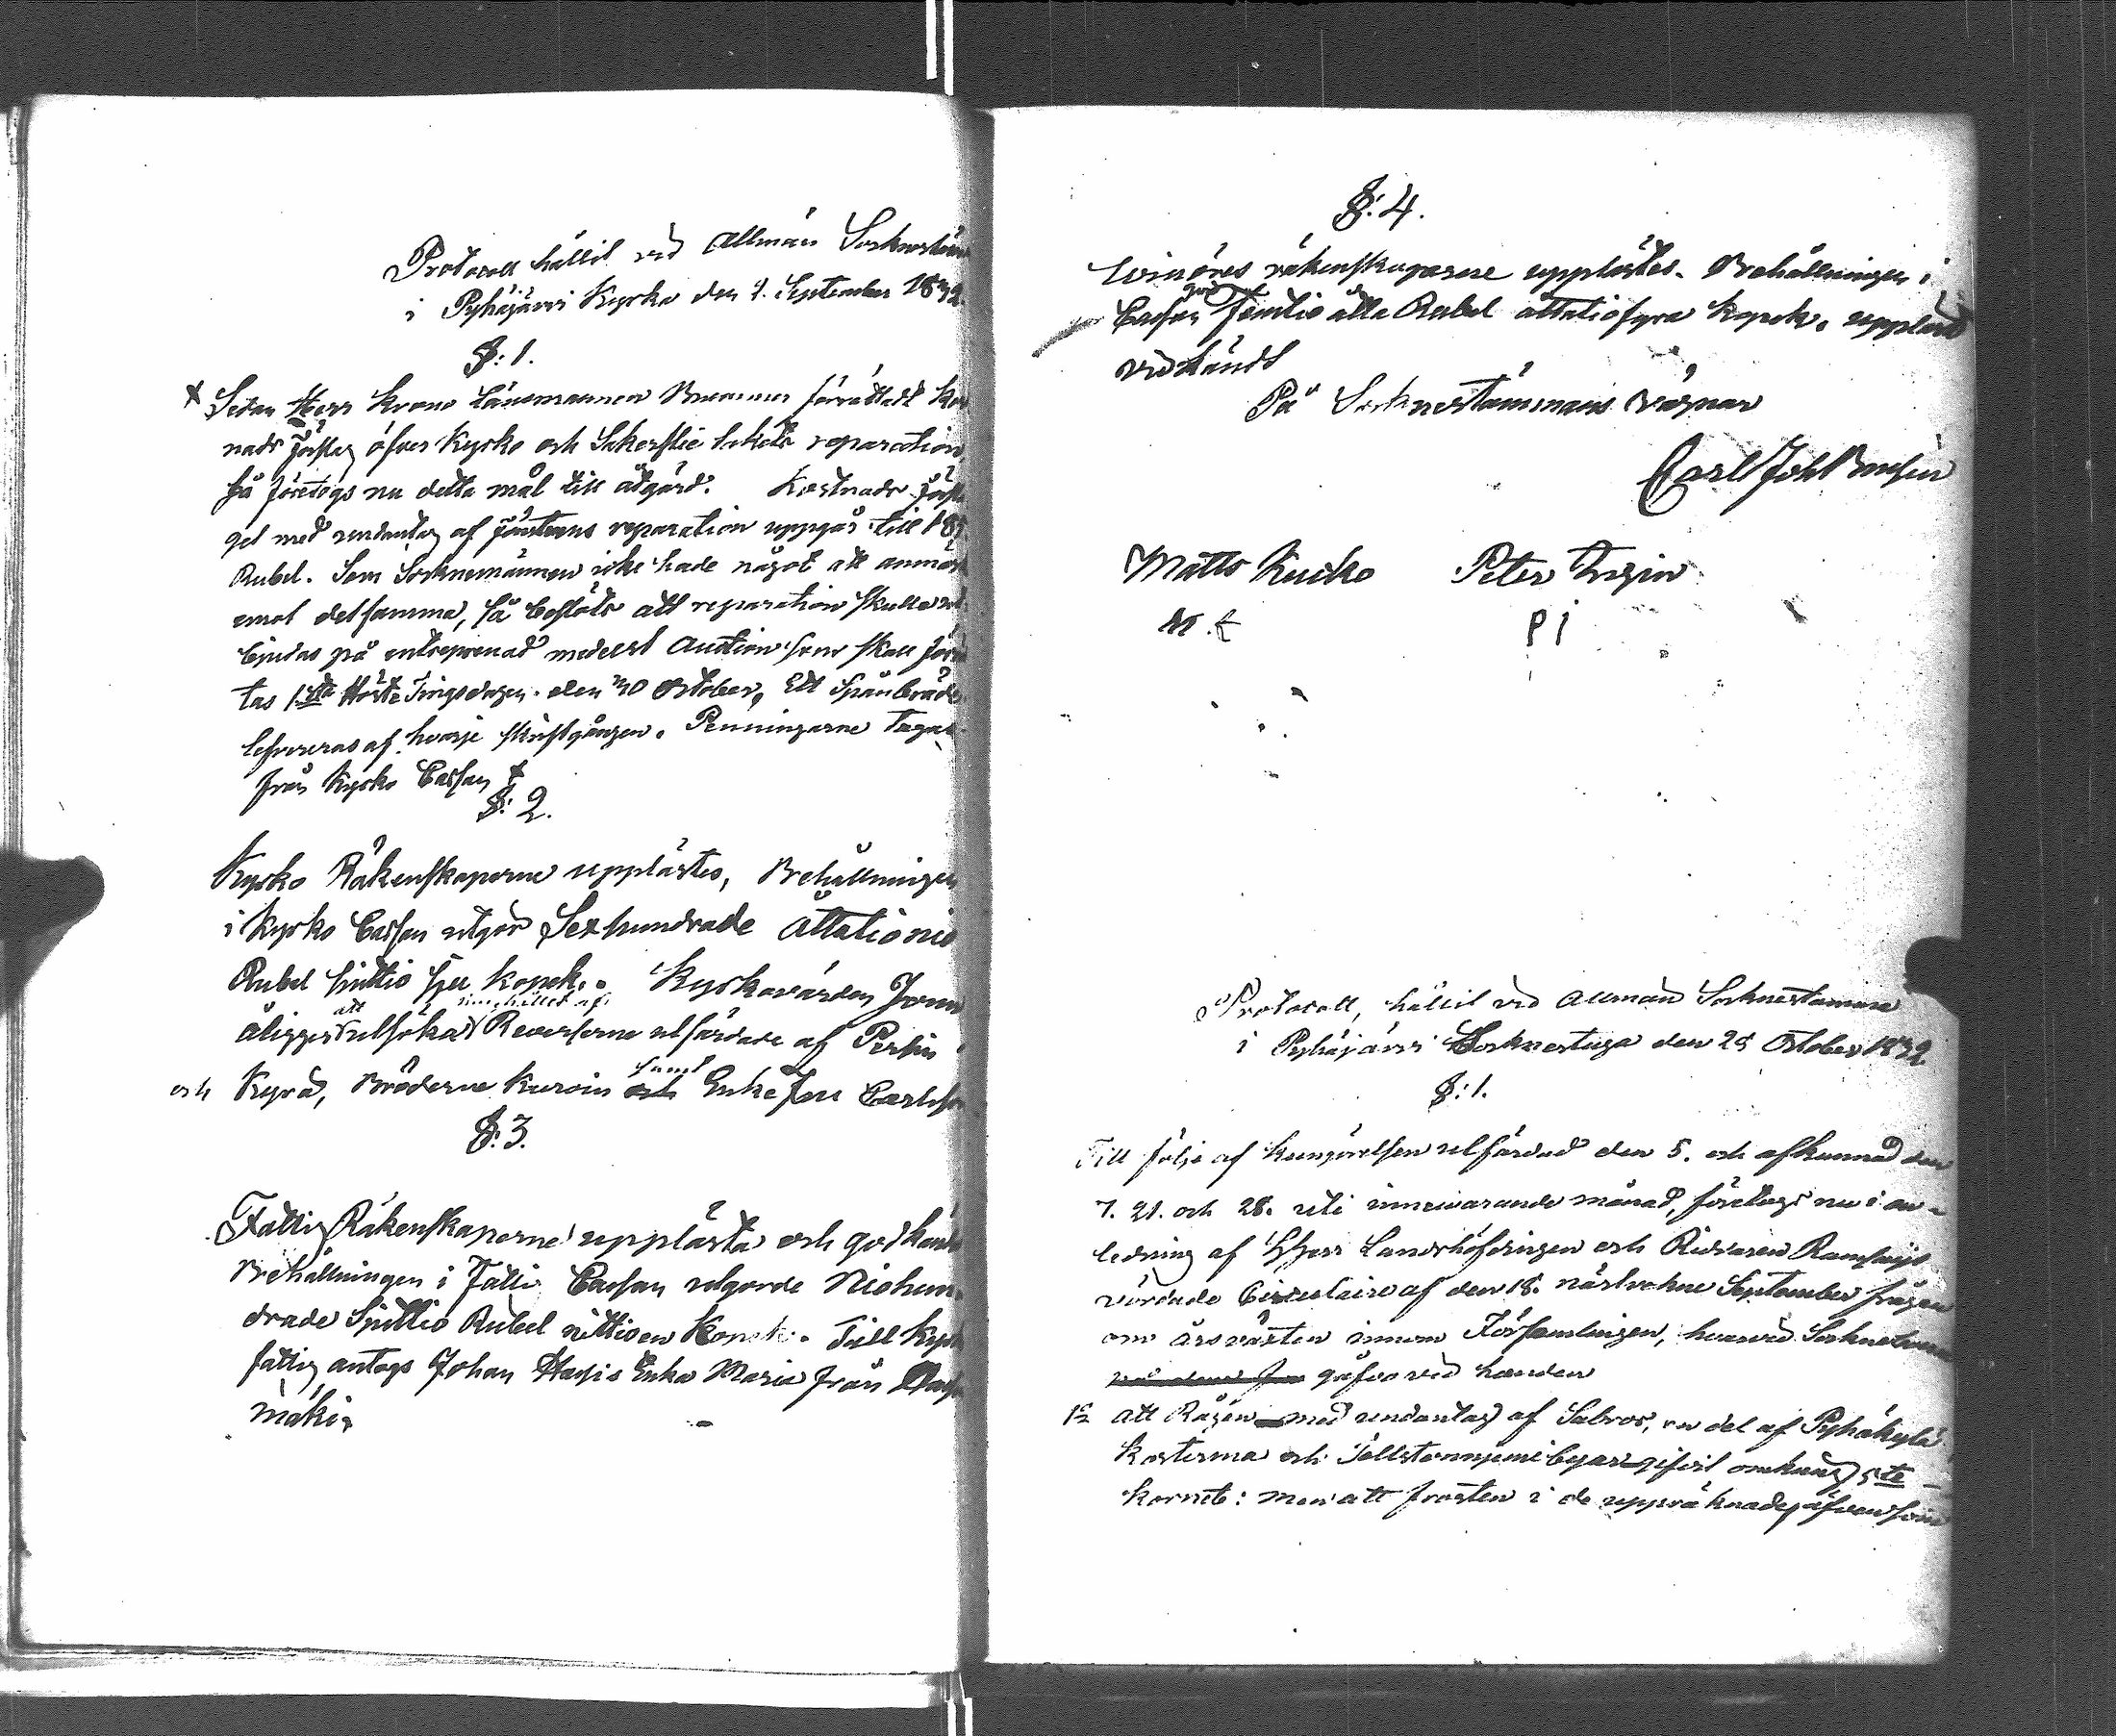 Protocoll hållit vid Allmän Socknestäm
i Pyhäjärvi Kyrka den 2. September 1832.
§: 1.
Sedan Herr Krono Länsmannen Brunner förrättadt Kost
nads förslag öfver Kyrko och Sakerstie takets reparation,
så företogs nu detta mål till åtgärd. Kostnads försla
get med undantag af fönstrens reparation uppgår till 18
Rubel. Som Socknemännen icke hade något att anmärk
emot detsamma, så beslöts att reparation skulle ut
bjudas på entreprenad medelst Auction som skall förrät
tas 1sta Höste Tingsdagen den 30 October, Ett Spånbräde
lefvereras af hvarje skiftgången. Penningarne tagas
från Kyrko Cassan
§: 2.
Kyrko Räkenskaperne upplästes, Behållningen
i Kyrko Cassan utgör Sexhundrade åttationio
Rubel sjuttio sju kopek. Kyrkovärden
att innehållet af
åligger utsöka Reverserne utfärdade af Persin
samt
och Kyrö, Bröderne Kurvin och Enke Fru Carlsson
§: 3.
Fattig Räkenskaperne upplästa och godkända
Behållningen i Fatti Cassan utgorde Niohun
drade Sjuttio Rubel nittioen Kopek. Till Kyrk
fattig antogs Johan Enka Maria från
mäki.
§: 4.
räkenskaperne upplästes. Behållningen i
Cassan Femtio åtta Rubel åttatiofyra Kopek. uppläst
vidkändt
På Socknestämmans vägnar
Carl Joh
Matts Kuiko Peter
P I
Protocoll, hållit vid Allmän Socknestämma
i Pyhäjärvi Socknestuga den 28 October 1832
§: 1.
Till följe af kungörelsen utfärdad den 5. och afkunnad den
7. 21. och 28. uti innevarande månad, företogs nu i an-
ledning af Herr Landshöfdingen och Riddaren Ramsays
vördade Circulaire af den 18. nästvekne September frågan
om årsväxten innom Församlingen, hvarvid Socknemän
gåfvo vid handen
1o att Rågen med undantag af Salvos, en del af Pyhäkylä
Kosterma och byar gifvit omkring 5te
kornet: men att frosten i de uppräknade äfvensom